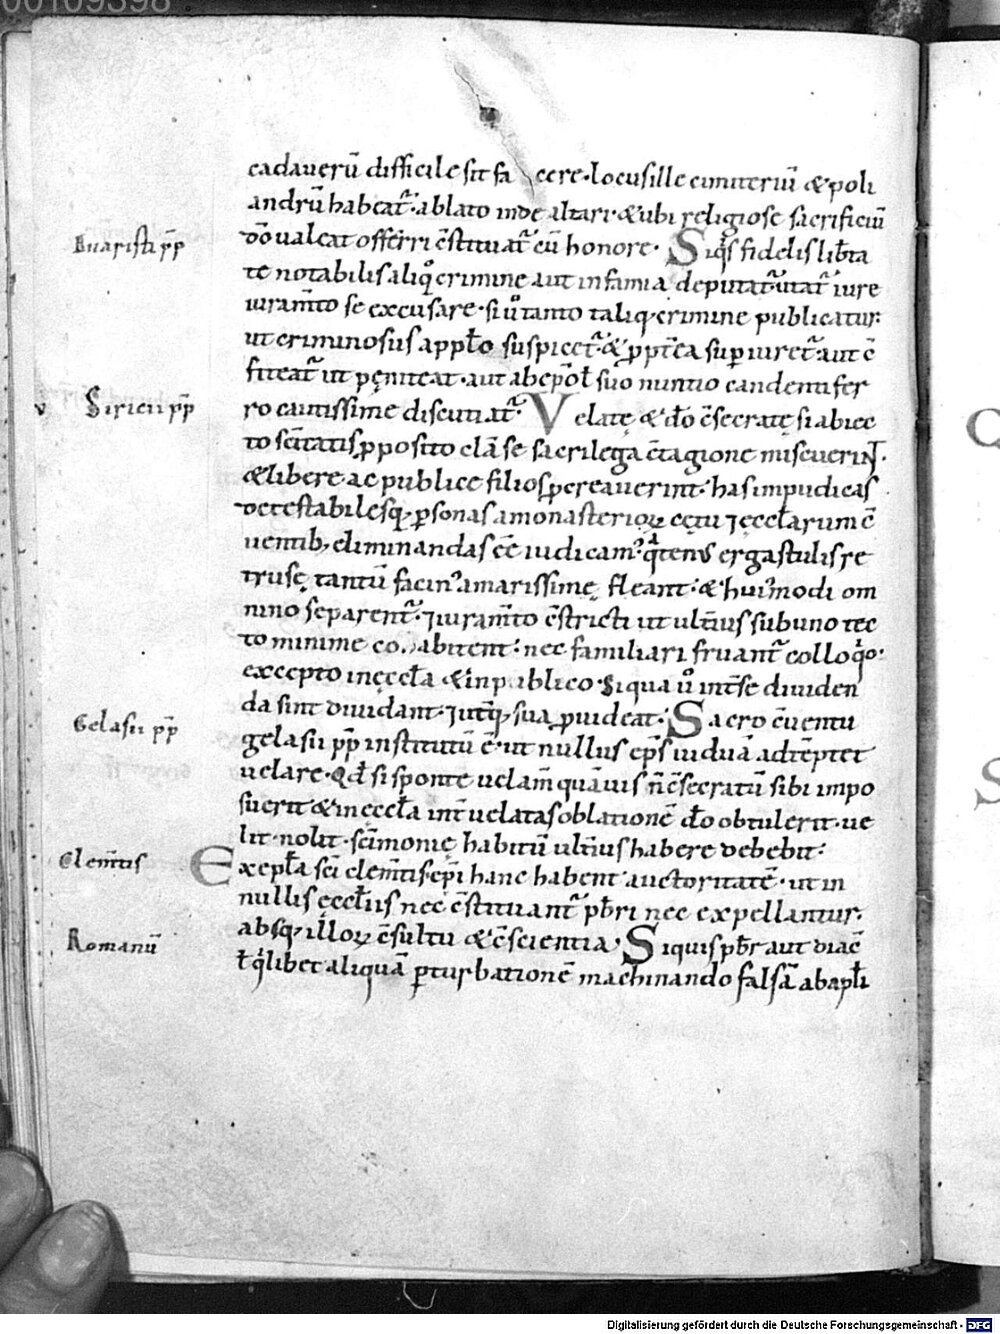 00109398
cadauerū difficile sit facere. locus ille cimiteriū & poli
andrū habeat᷑. ablato inde altari. & ubi religiose sacrificiū
dō ualeat offerri c̄stituat᷑ cū honore. Siq͛s fidelis lib̄ta
Euaristi pp̄
te notabilis aliqͦ crimine aut infamia deputat᷑. utat᷑ iure
iuram̄to se excusare. si ů tanto taliq; crimine publicatur.
ut criminosus app̄lo suspicet᷑. & ꝓpt̄ea sup iuret᷑. aut c̄
fiteat᷑ ut pęniteat. aut ab ep̄o ł suo nuntio candenti fer
ro cautissime discutiat᷑. Velatę & dō c̄secratę si abiec
Siricii pp̄
to sc̄itatis ꝓposito clā se sacrilega c̄tagione miscuerint.
& libere ac publice filios ꝓcreauerint. has impudicas
detestabilesq; ꝑsonas a monasterioꝝ cętu ⁊ ęccl̄arum c̄
uentib; eliminandas ēē iudicam᷒. q̈tenus ergastulis re
trusę tantū facin᷒ amarissime fleant. & hui᷒modi om
nino separent᷑. ⁊ iuram̄to c̄stricti ut ult̄ius sub uno tec
to minime cohabitent. nec familiari fruant᷑ colloq̊o.
excepto in ęccl̄a & in publico. Si qua ů int̄ se diuiden
da sint diuidant. ⁊ ut̄q; sua ꝓuideat. Sacro c̄uentu
Gelasii pp̄
gelasii pp̄ institutū ē. ut nullus ep̄s uiduā adtēptet
uelare. Qd̄ si sponte uelam̄ quāuis ñ c̄secratū sibi impo
suerit & in ęccl̄a int̄ uelatas oblationē dō obtulerit. ue
lit. nolit. sc̄imonię habitū ult̄ius habere debebit.
Clem̄tis
Exēpla sc̄i clem̄tis ep̄i hanc habent auctoritatē. ut in
nullis ęccl̄iis nec c̄stituant᷑ pb̄ri nec expellantur.
absq; illoꝝ c̄sultu & c̄scientia. Si quis pb̄r aut diac̄
Romanū
ł q͛libet aliquā ꝑturbationē machinando falsā ab ap̄łi
Digitalisierung gefördert durch die Deutsche Forschungsgemeinschaft - DFG